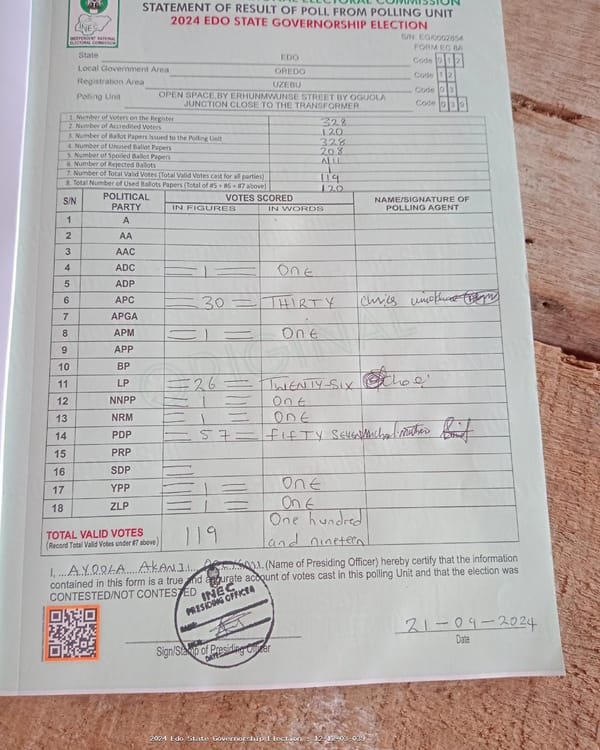 STATEMENT OF RESULT OF POLL FROM POLLING UNIT
2024 EDO STATE GOVERNORSHIP ELECTION
INEC
INDEPENDENT NATIONAL
ELECTORAL COMMISSION
FORM EC 8A
State EDO Code 0 1 2
Local Government Area OREDO Code 1 2
Registration Area UZEBU Code 0 3
Polling Unit OPEN SPACE,BY ERHUNMWUNSE STREET BY OGUOLA Code 0 3 9
JUNCTION CLOSE TO THE TRANSFORMER
1. Number of Voters on the Register 328
2. Number of Accredited Voters 120
3. Number of Ballot Papers Issued to the Polling Unit 328
4. Number of Unused Ballot Papers 208
5. Number of Spoiled Ballot Papers Nil
6. Number of Rejected Ballots 1
7. Number of Total Valid Votes (Total Valid Votes cast for all parties) 119
8. Total Number of Used Ballots Papers (Total of #5 + #6 + #7 above) 120
S/N POLITICAL PARTY VOTES SCORED NAME/SIGNATURE OF POLLING AGENT
IN FIGURES IN WORDS
1 A
2 AA
3 AAC
4 ADC 1 ONE
5 ADP
6 APC 30 THIRTY
7 APGA
8 APM 1 ONE
9 APP
10 BP
11 LP 26 TWENTY-SIX
12 NNPP 1 ONE
13 NRM 1 ONE
14 PDP 57 FIFTY SEVEN
15 PRP
16 SDP
17 YPP 1 ONE
18 ZLP 1 ONE
TOTAL VALID VOTES 119 One hundred and nineteen
(Record Total Valid Votes under #7 above)
I, AYOOLA AKANJI (Name of Presiding Officer) hereby certify that the information
contained in this form is a true and accurate account of votes cast in this polling Unit and that the election was
CONTESTED/NOT CONTESTED
INEC
PRESIDING OFFICER
DATE
21-09-2024
Sign/Stamp of Presiding Officer
Date
2024 Edo State Governorship Election - 12-12-03-039